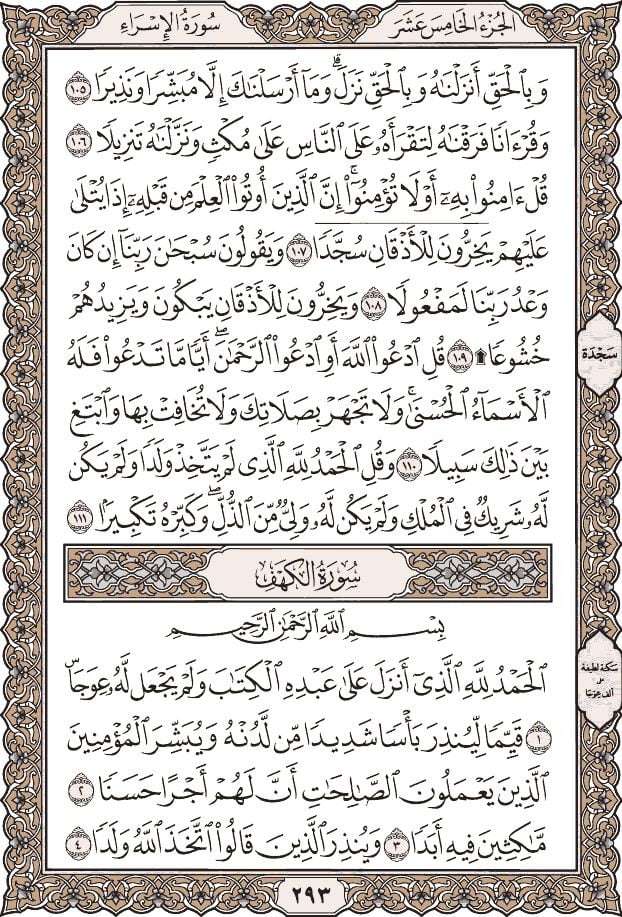 الجزء الخامس عشر
سورة الإسراء
وَبِٱلْحَقِّ أَنزَلْنَٰهُ وَبِٱلْحَقِّ نَزَلَۗ وَمَآ أَرْسَلْنَٰكَ إِلَّا مُبَشِّرًا وَنَذِيرًا ١٠٥
وَقُرْءَانًا فَرَقْنَٰهُ لِتَقْرَأَهُۥ عَلَى ٱلنَّاسِ عَلَىٰ مُكْثٍ وَنَزَّلْنَٰهُ تَنزِيلًا ١٠٦
قُلْ ءَامِنُوا۟ بِهِۦٓ أَوْ لَا تُؤْمِنُوٓا۟ۚ إِنَّ ٱلَّذِينَ أُوتُوا۟ ٱلْعِلْمَ مِن قَبْلِهِۦٓ إِذَا يُتْلَىٰ
عَلَيْهِمْ يَخِرُّونَ لِلْأَذْقَانِ سُجَّدًا ١٠٧ وَيَقُولُونَ سُبْحَٰنَ رَبِّنَآ إِن كَانَ
وَعْدُ رَبِّنَا لَمَفْعُولًا ١٠٨ وَيَخِرُّونَ لِلْأَذْقَانِ يَبْكُونَ وَيَزِيدُهُمْ
خُشُوعًا ۩ ١٠٩ قُلِ ٱدْعُوا۟ ٱللَّهَ أَوِ ٱدْعُوا۟ ٱلرَّحْمَٰنَۖ أَيًّا مَّا تَدْعُوا۟ فَلَهُ
ٱلْأَسْمَآءُ ٱلْحُسْنَىٰۚ وَلَا تَجْهَرْ بِصَلَاتِكَ وَلَا تُخَافِتْ بِهَا وَٱبْتَغِ
بَيْنَ ذَٰلِكَ سَبِيلًا ١١٠ وَقُلِ ٱلْحَمْدُ لِلَّهِ ٱلَّذِى لَمْ يَتَّخِذْ وَلَدًا وَلَمْ يَكُن
لَّهُۥ شَرِيكٌ فِى ٱلْمُلْكِ وَلَمْ يَكُن لَّهُۥ وَلِىٌّ مِّنَ ٱلذُّلِّۖ وَكَبِّرْهُ تَكْبِيرًۢا ١١١
سورة الكهف
بِسْمِ ٱللَّهِ ٱلرَّحْمَٰنِ ٱلرَّحِيمِ
ٱلْحَمْدُ لِلَّهِ ٱلَّذِىٓ أَنزَلَ عَلَىٰ عَبْدِهِ ٱلْكِتَٰبَ وَلَمْ يَجْعَل لَّهُۥ عِوَجَاۜ
١ قَيِّمًا لِّيُنذِرَ بَأْسًا شَدِيدًا مِّن لَّدُنْهُ وَيُبَشِّرَ ٱلْمُؤْمِنِينَ
ٱلَّذِينَ يَعْمَلُونَ ٱلصَّٰلِحَٰتِ أَنَّ لَهُمْ أَجْرًا حَسَنًا ٢
مَّٰكِثِينَ فِيهِ أَبَدًا ٣ وَيُنذِرَ ٱلَّذِينَ قَالُوا۟ ٱتَّخَذَ ٱللَّهُ وَلَدًا ٤
سَجْدَة
سكتة لطيفة
على
ألف عوجا
٢٩٣